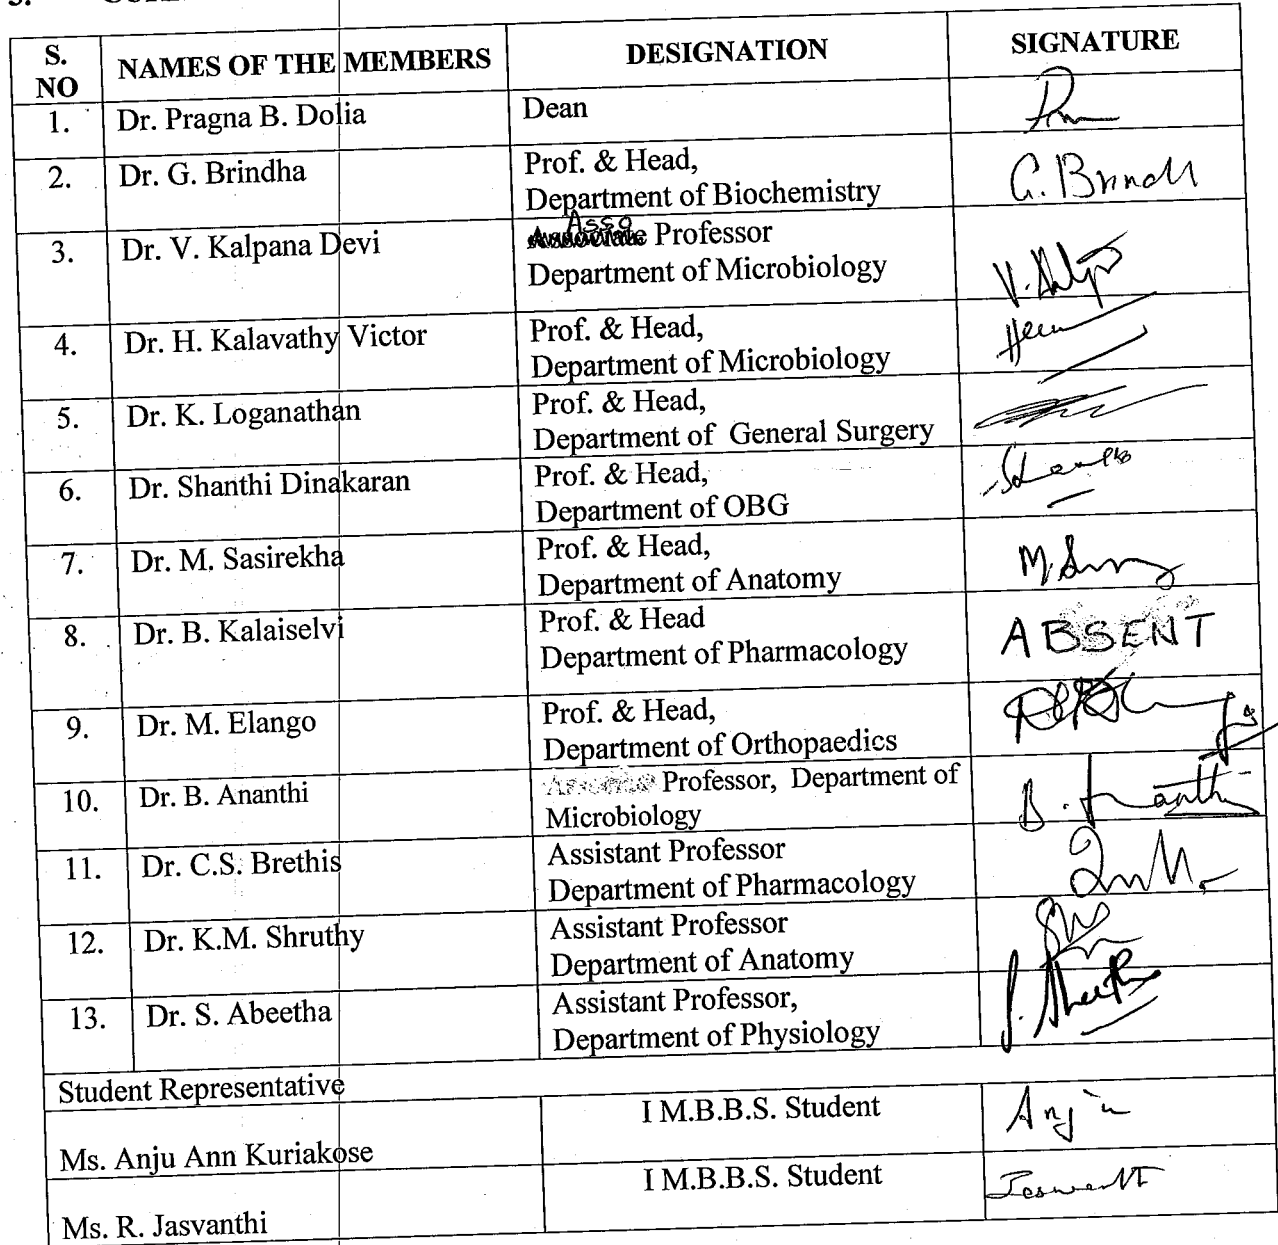 S. NO NAMES OF THE MEMBERS DESIGNATION SIGNATURE
1. Dr. Pragna B. Dolia Dean
2. Dr. G. Brindha Prof. & Head, G. Brindh
Department of Biochemistry
3. Dr. V. Kalpana Devi Asso Professor
Department of Microbiology
4. Dr. H. Kalavathy Victor Prof. & Head,
Department of Microbiology
5. Dr. K. Loganathan Prof. & Head,
Department of General Surgery
6. Dr. Shanthi Dinakaran Prof. & Head,
Department of OBG
7. Dr. M. Sasirekha Prof. & Head,
Department of Anatomy
8. Dr. B. Kalaiselvi Prof. & Head ABSENT
Department of Pharmacology
9. Dr. M. Elango Prof. & Head,
Department of Orthopaedics
10. Dr. B. Ananthi Professor, Department of
Microbiology
11. Dr. C.S. Brethis Assistant Professor
Department of Pharmacology
12. Dr. K.M. Shruthy Assistant Professor
Department of Anatomy
13. Dr. S. Abeetha Assistant Professor,
Department of Physiology
Student Representative
Ms. Anju Ann Kuriakose I M.B.B.S. Student Anju
Ms. R. Jasvanthi I M.B.B.S. Student